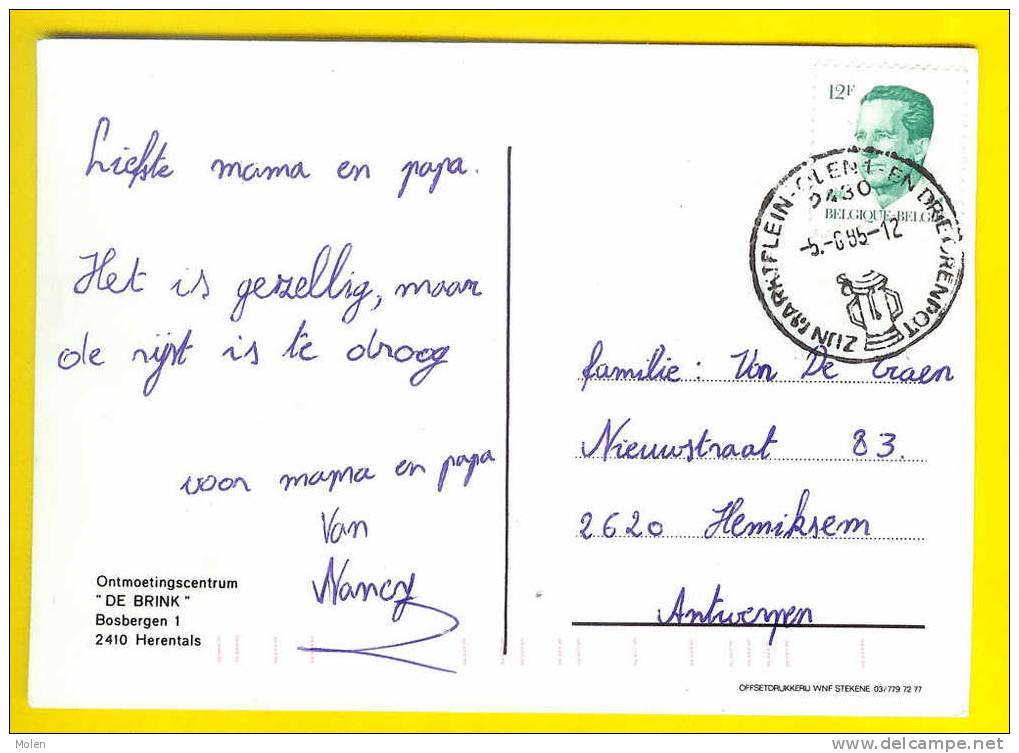 Liefste mama en papa.
Het is gezellig, maar
de rijst is te droog
voor mama en papa
Van
Nancy
Ontmoetingscentrum
"DE BRINK"
Bosbergen 1
2410 Herentals
12F
BELGIQUE-BELGIË
ZIJN MARKTPLEIN-OLEN 1-EN DRIEORENPOT
2430
-5.-685-12
familie: Van De Craen
Nieuwstraat 83.
2620 Hemiksem
Antwerpen
OFFSETDRUKKERIJ WNF STEKENE 03/779 72 77
Molen
www.delcampe.net